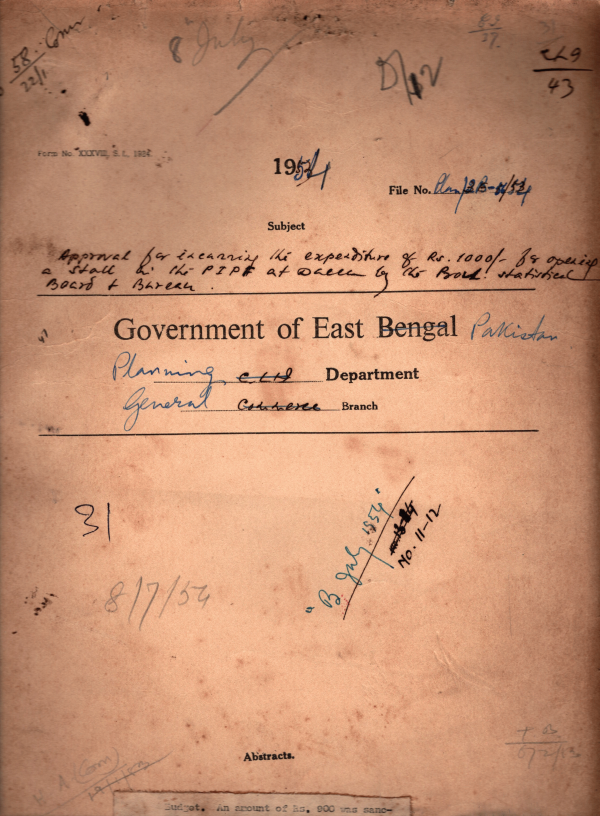 58. Com
22/1
8 July
D/12
CL9
43
Form No. XXXVII, S.I, 1924
1954
File No. Plan/2B-4/54
Subject
Approval for incurring the expenditure of Rs. 1000/- for opening
a stall in the PIPF at Dacca by the Prov. statistical
Board & Bureau.
Government of East Bengal Pakistan
Planning Department
General Commerce Branch
31
"B July 1954"
No. 11-12
8/7/54
Abstracts.
Budget. An amount of Rs. 900 was sanc-